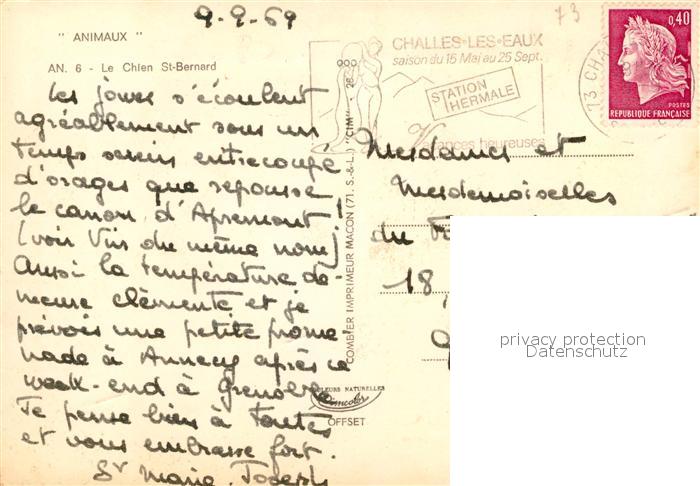 9-9-69
73
" ANIMAUX "
AN. 6 - Le Chien St-Bernard
Les jours s'écoulent
agréablement sous un
temps serein entrecoupé
d'orages que repousse
le canon d'Apremont !
(voir Vins du même nom)
Aussi la température de-
meure clémente et je
prévois une petite prome
nade à Annecy après ce
week-end à Grenoble
Je pense bien à toutes
et vous embrasse fort.
Sr Marie Joseph
COMBIER IMPRIMEUR MACON (71. S.-&-L.) "CIM"
COULEURS NATURELLES
Cimcolor
OFFSET
CHALLES-LES-EAUX
saison du 15 Mai au 25 Sept.
STATION
THERMALE
Vacances heureuses
73 CHA
0,40
POSTES
REPUBLIQUE FRANÇAISE
Mesdames et
Mesdemoiselles
du
18,
privacy protection
Datenschutz